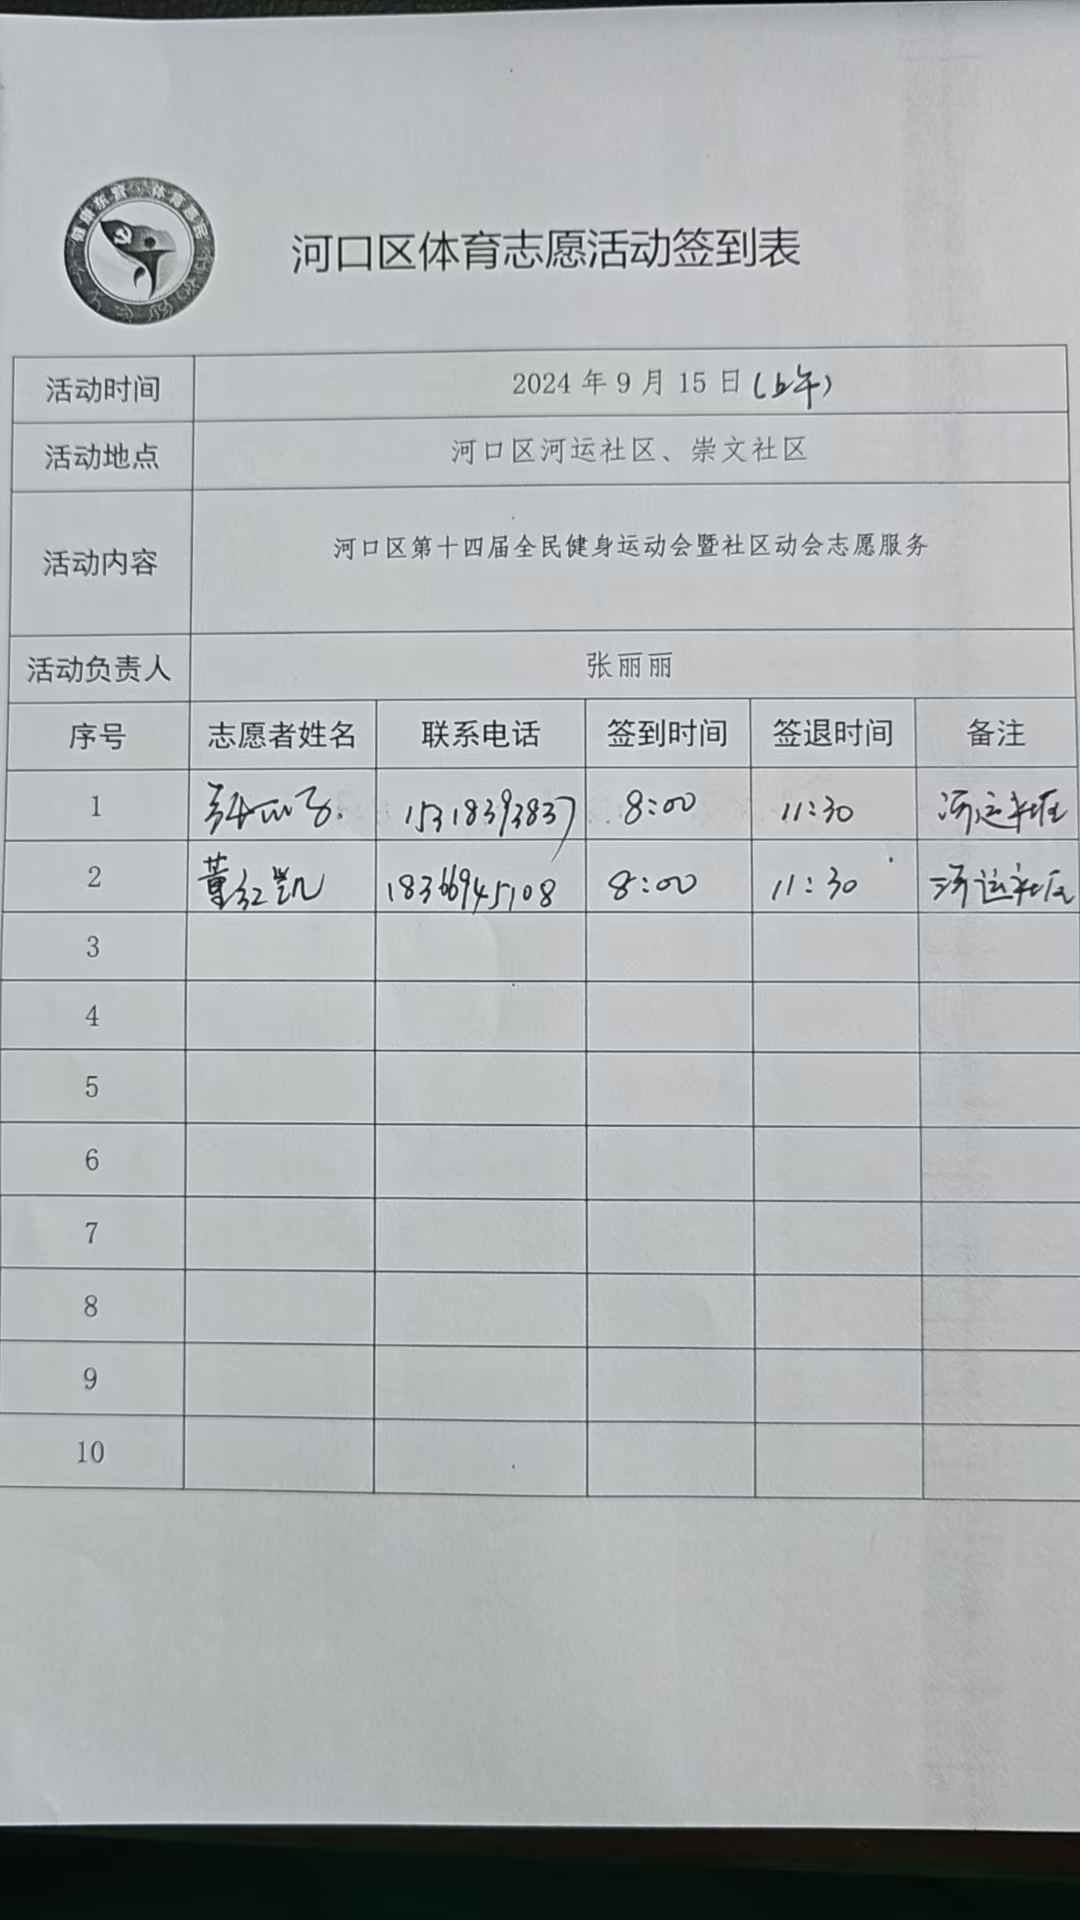 健康东营 体育惠民
河口区体育志愿活动签到表
活动时间 2024年9月15日(上午)
活动地点 河口区河运社区、崇文社区
活动内容 河口区第十四届全民健身运动会暨社区动会志愿服务
活动负责人 张丽丽
序号 志愿者姓名 联系电话 签到时间 签退时间 备注
1 15318393837 8:00 11:30 河运社区
2 董红凯 18366945108 8:00 11:30 河运社区
3
4
5
6
7
8
9
10